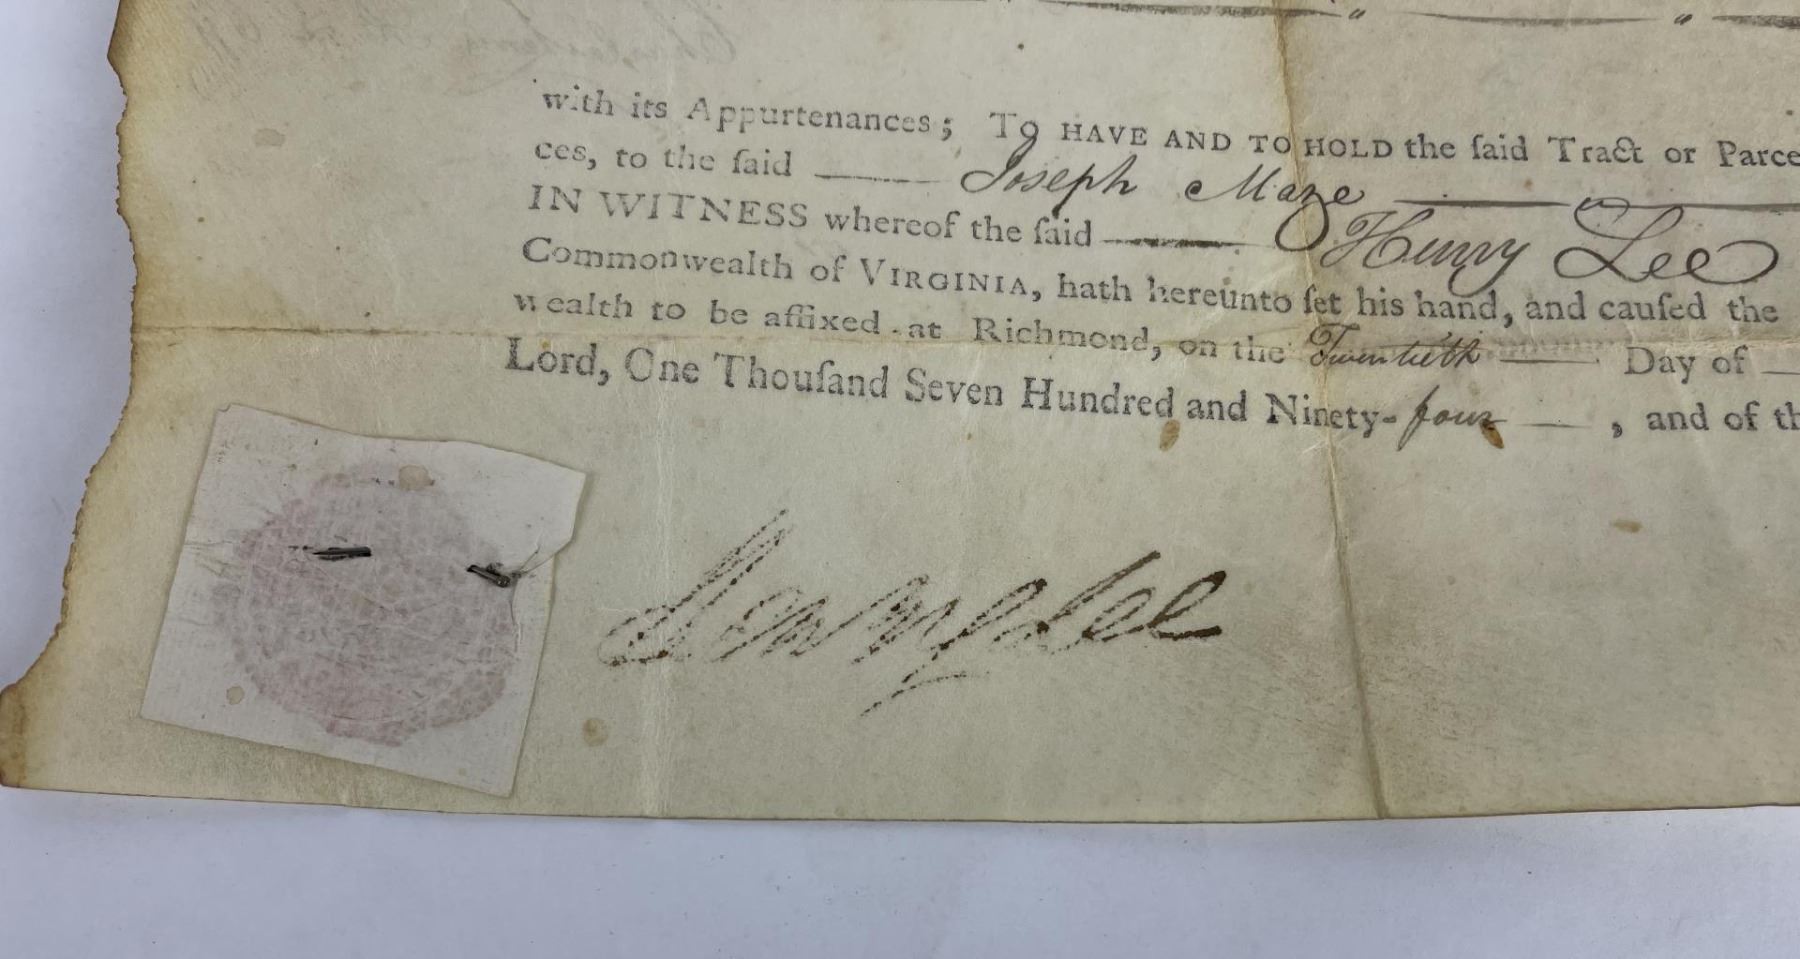 with its Appurtenances; To HAVE AND TO HOLD the ſaid Tract or Parce
ces, to the ſaid Joseph Maze
IN WITNESS whereof the ſaid Henry Lee
Commonwealth of VIRGINIA, hath hereunto ſet his hand, and cauſed the
wealth to be affixed at Richmond, on the Twentieth Day of
Lord, One Thouſand Seven Hundred and Ninety-four, and of th
Henry Lee